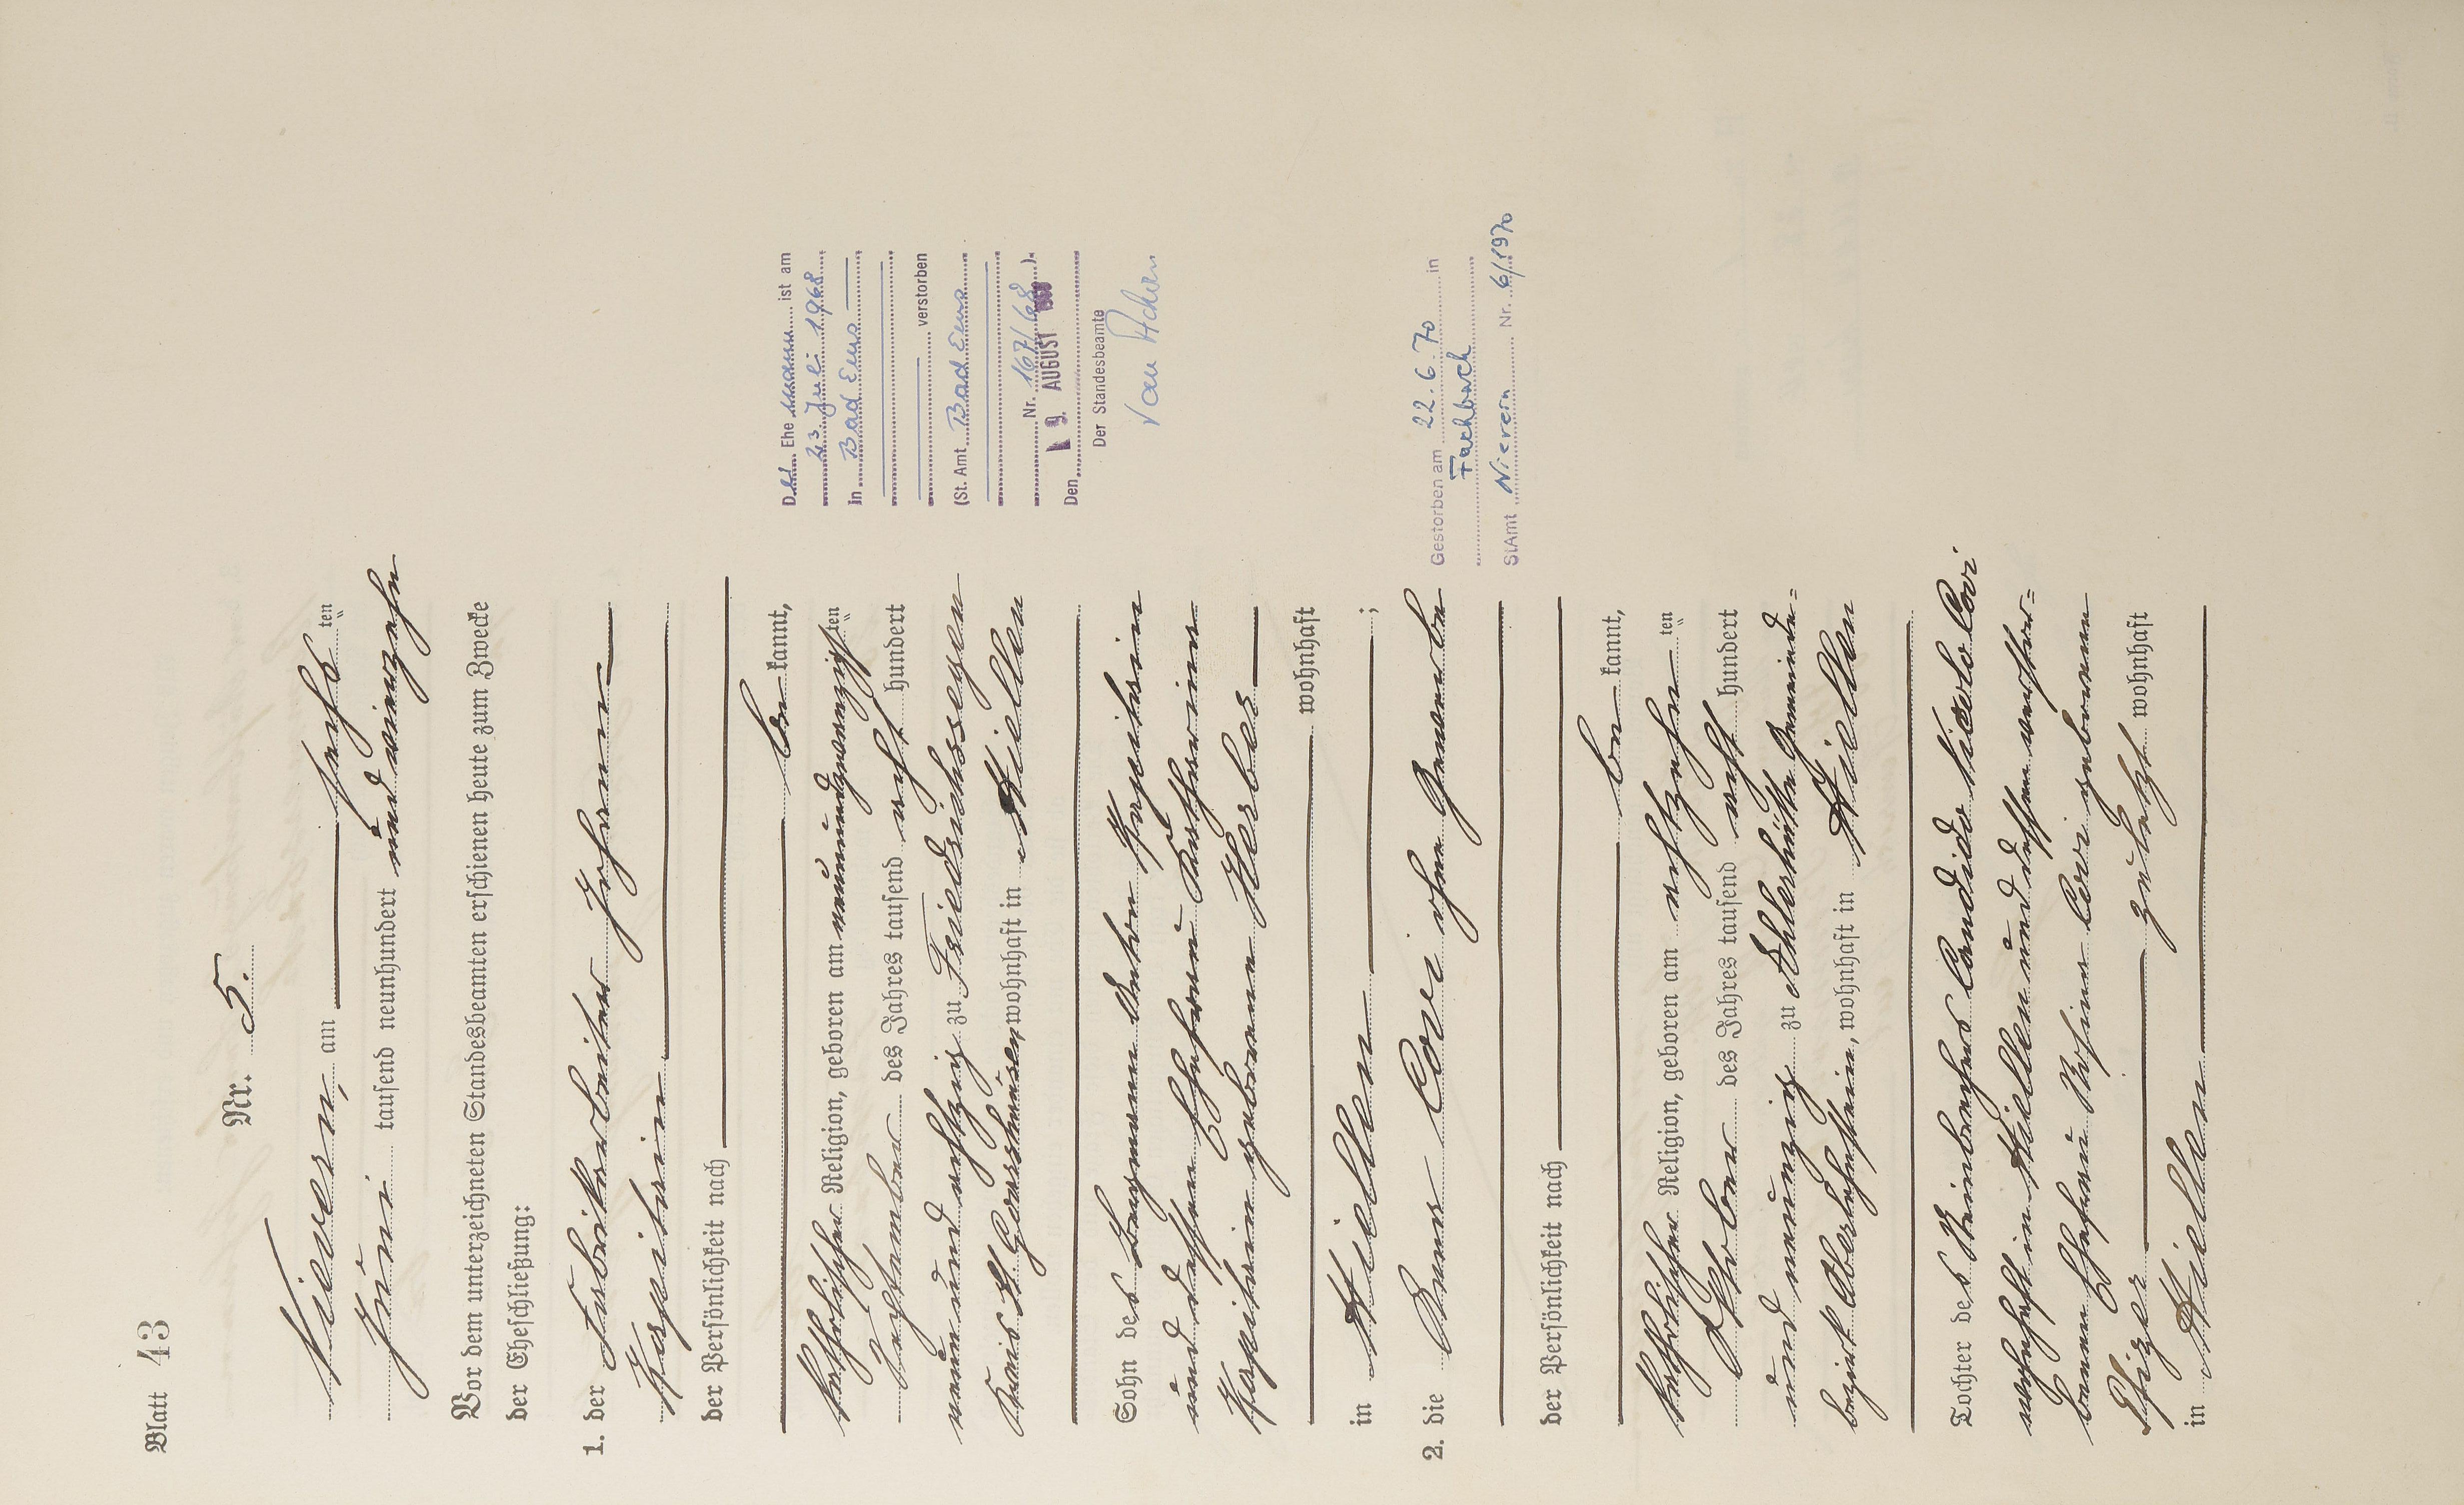 Blatt 43
Nr. 5.
Nievern, am sechsten
Juni tausend neunhundert und vierzehn
Vor dem unterzeichneten Standesbeamten erschienen heute zum Zwecke
der Eheschließung:
1. der Fabrikarbeiter Johann
Kaspitein
der Persönlichkeit nach
be kannt,
katholischer Religion, geboren am neunundzwanzigsten
September des Jahres tausend acht hundert
neun und achtzig zu Friedrichssegen
Kreis St. Goarshausen, wohnhaft in Miellen
Sohn des Bergmann Anton
und dessen Ehefrau Katharina
geborenen
wohnhaft
in Miellen ;
2. die Anna Covi ohne Gewerbe
der Persönlichkeit nach
be kannt,
katholischer Religion, geboren am achtzehnten
Oktober des Jahres tausend acht hundert
und neunzig zu Ahlerhütte Gemeinde-
bezirk Oberlahnstein, wohnhaft in Miellen
Tochter des Steinbrechers Candido Nicolo Covi
wohnhaft in Miellen und dessen verstor-
benen Ehefrau Rosina Covi geborenen
zuletzt wohnhaft
in Miellen
Der Ehemann ist am
23. Juli 1968
in Bad Ems
verstorben
(St. Amt Bad Ems
Nr. 167/68).
Den 9. AUGUST 1968
Der Standesbeamte
Gestorben am 22.6.70 in
Fachbach
StAmt Nievern Nr. 6/1970